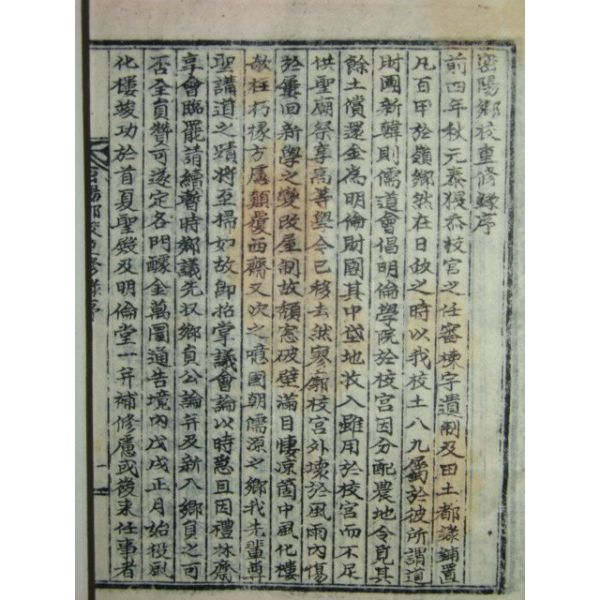 密陽鄉校重修錄序
前四年秋元泰猥忝校宮之任審棟宇遺制及田土都錄鋪置
凡百甲於嶺鄉然在日政之時以我校土八九屬於彼所謂道
財團新韓則儒道會倡明倫學院於校宮因分配農地令覓其
餘土償還金爲明倫財團其中垈地收入雖用於校宮而不足
供聖廟祭享高等學今已移去然寥廓校宮外壞於風雨內傷
於廛回新學之變改屋制故頹窓破壁滿目悽凉箇中風化樓
欹柱朽椽方属顛覆西齋又次之噫國朝儒源之鄉我先輩尊
聖講道之蹟將至掃如故卽招掌議會論以時急且因禮林齋
享會臨罷請續暫時鄉議先奴鄉員公論并及新入鄉員之可
否全員贊可遂定各門醵金萬圜通告境內戊戌正月始役風
化樓竣功於首夏聖殿及明倫堂一并補修慮或後來任事者
鄉校重修錄序
一